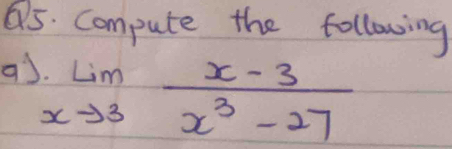 Q5. Compute the following
a). Lim x - 3
x→3 x³ - 27